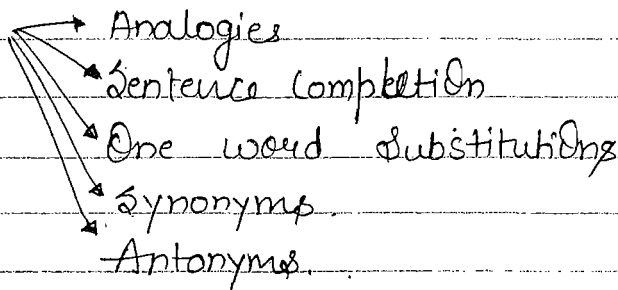 Analogies
Sentence Completion
One word Substitutions
Synonyms.
Antonyms.